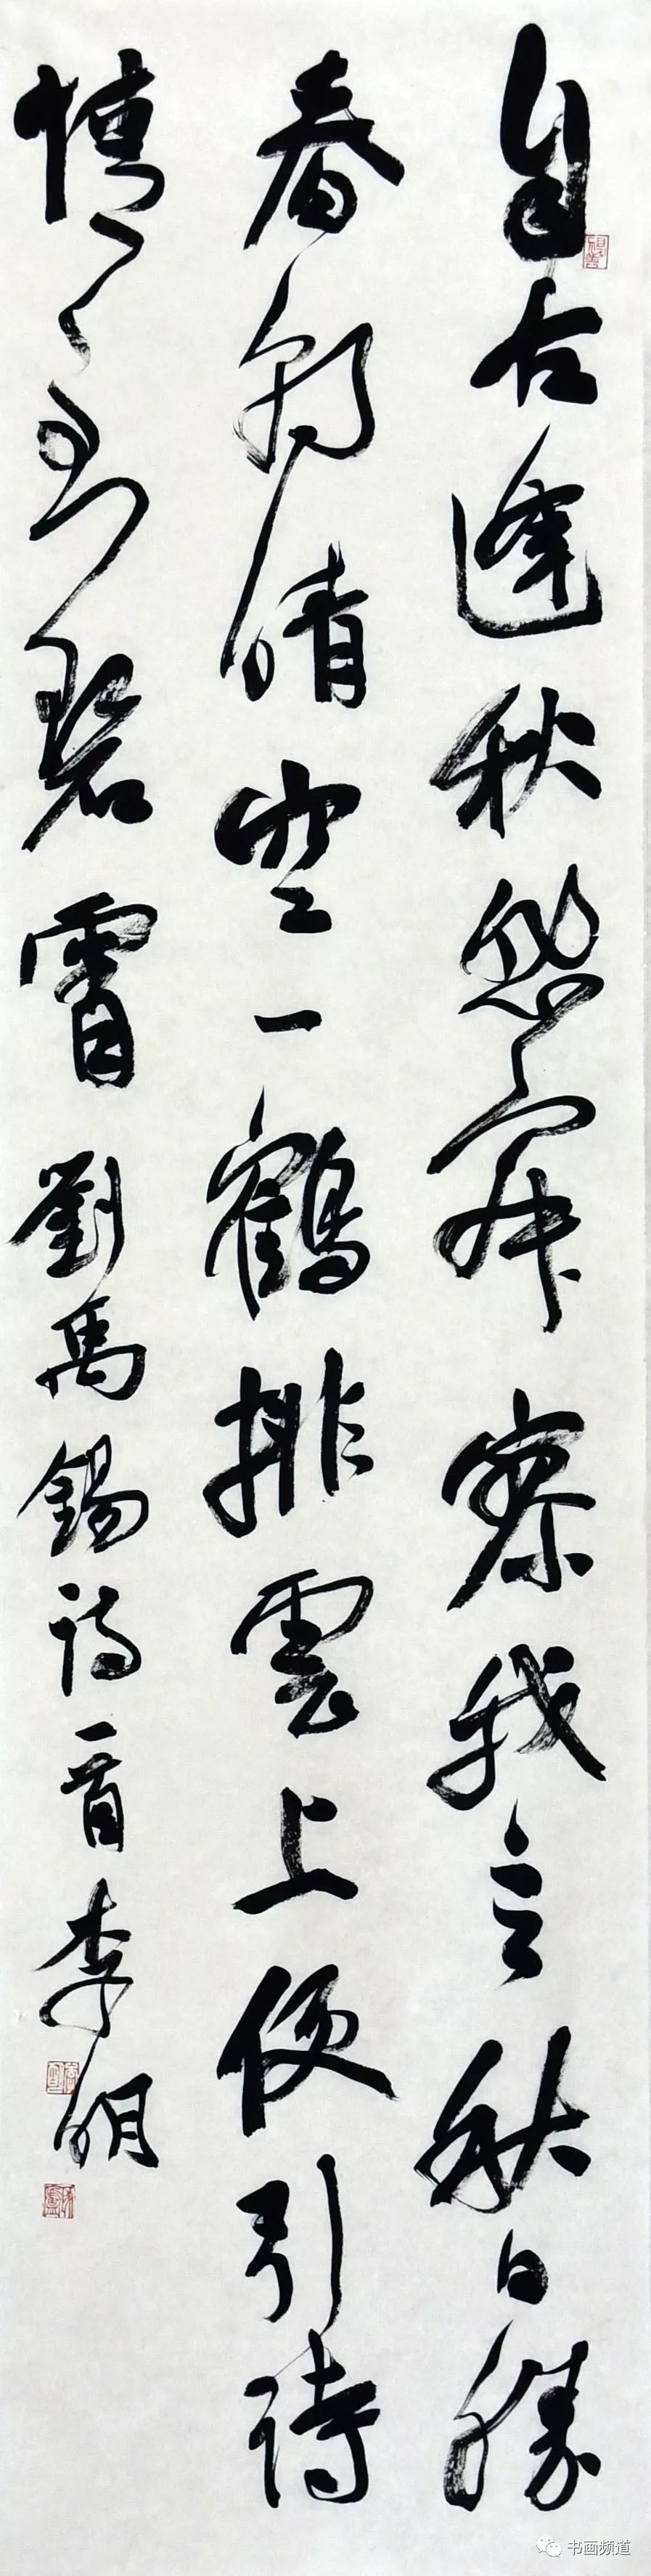 自古逢秋悲寂寥我言秋日勝
春朝晴空一鶴排雲上便引詩
情到碧霄 劉禹錫詩一首 李明
书画频道